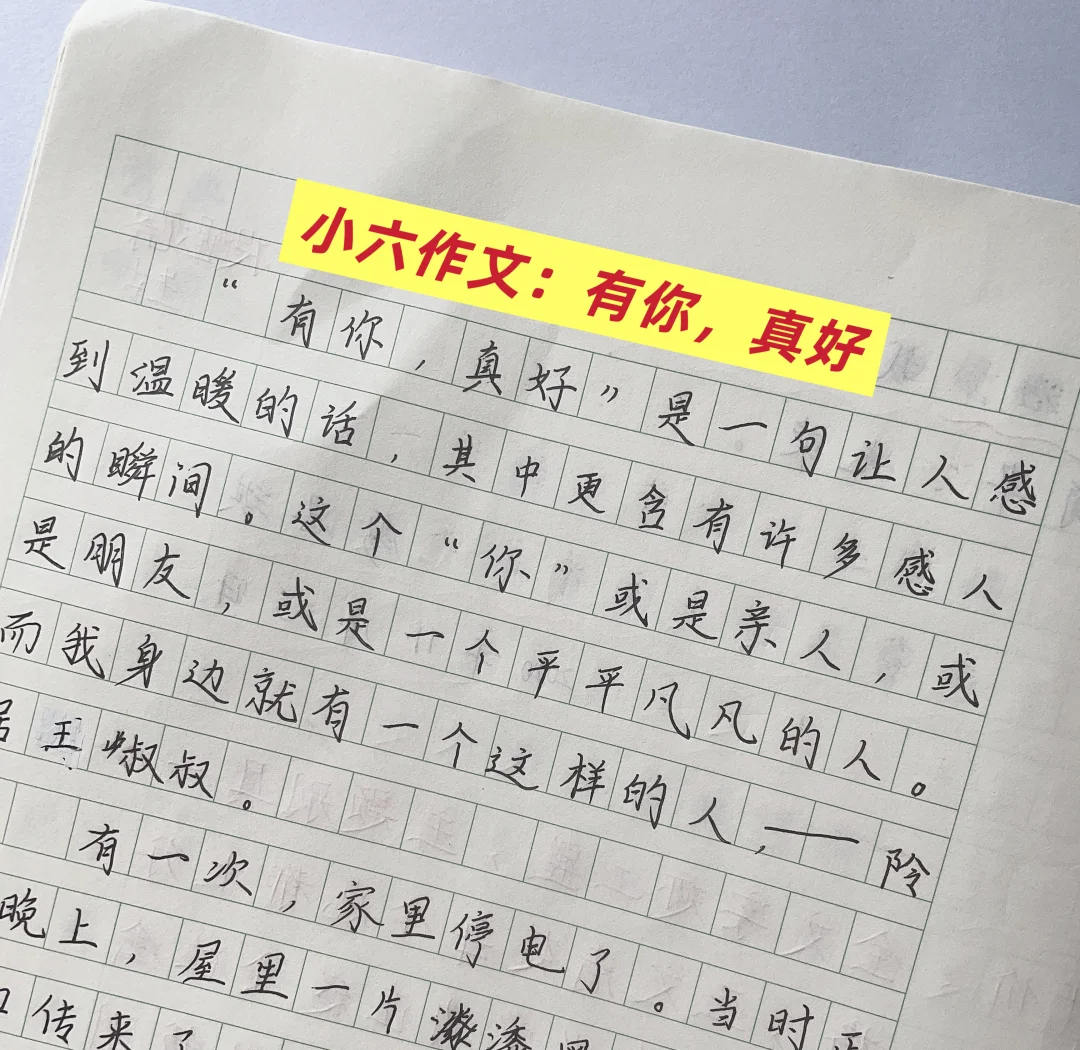 小六作文：有你，真好
“有你，真好”是一句让人感
到温暖的话，其中更含有许多感人
的瞬间。这个“你”或是亲人，或
是朋友，或是一个平平凡凡的人。
而我身边就有一个这样的人，——阾
居王叔叔。
有一次，家里停电了。当时正
晚上，屋里一片漆黑
口传来了